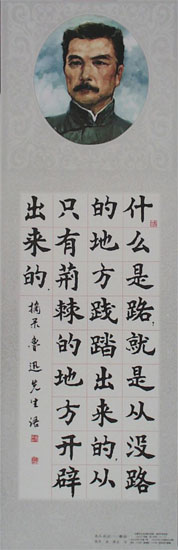 什么是路,就是从没路
的地方践踏出来的,从
只有荆棘的地方开辟
出来的.
摘录鲁迅先生语